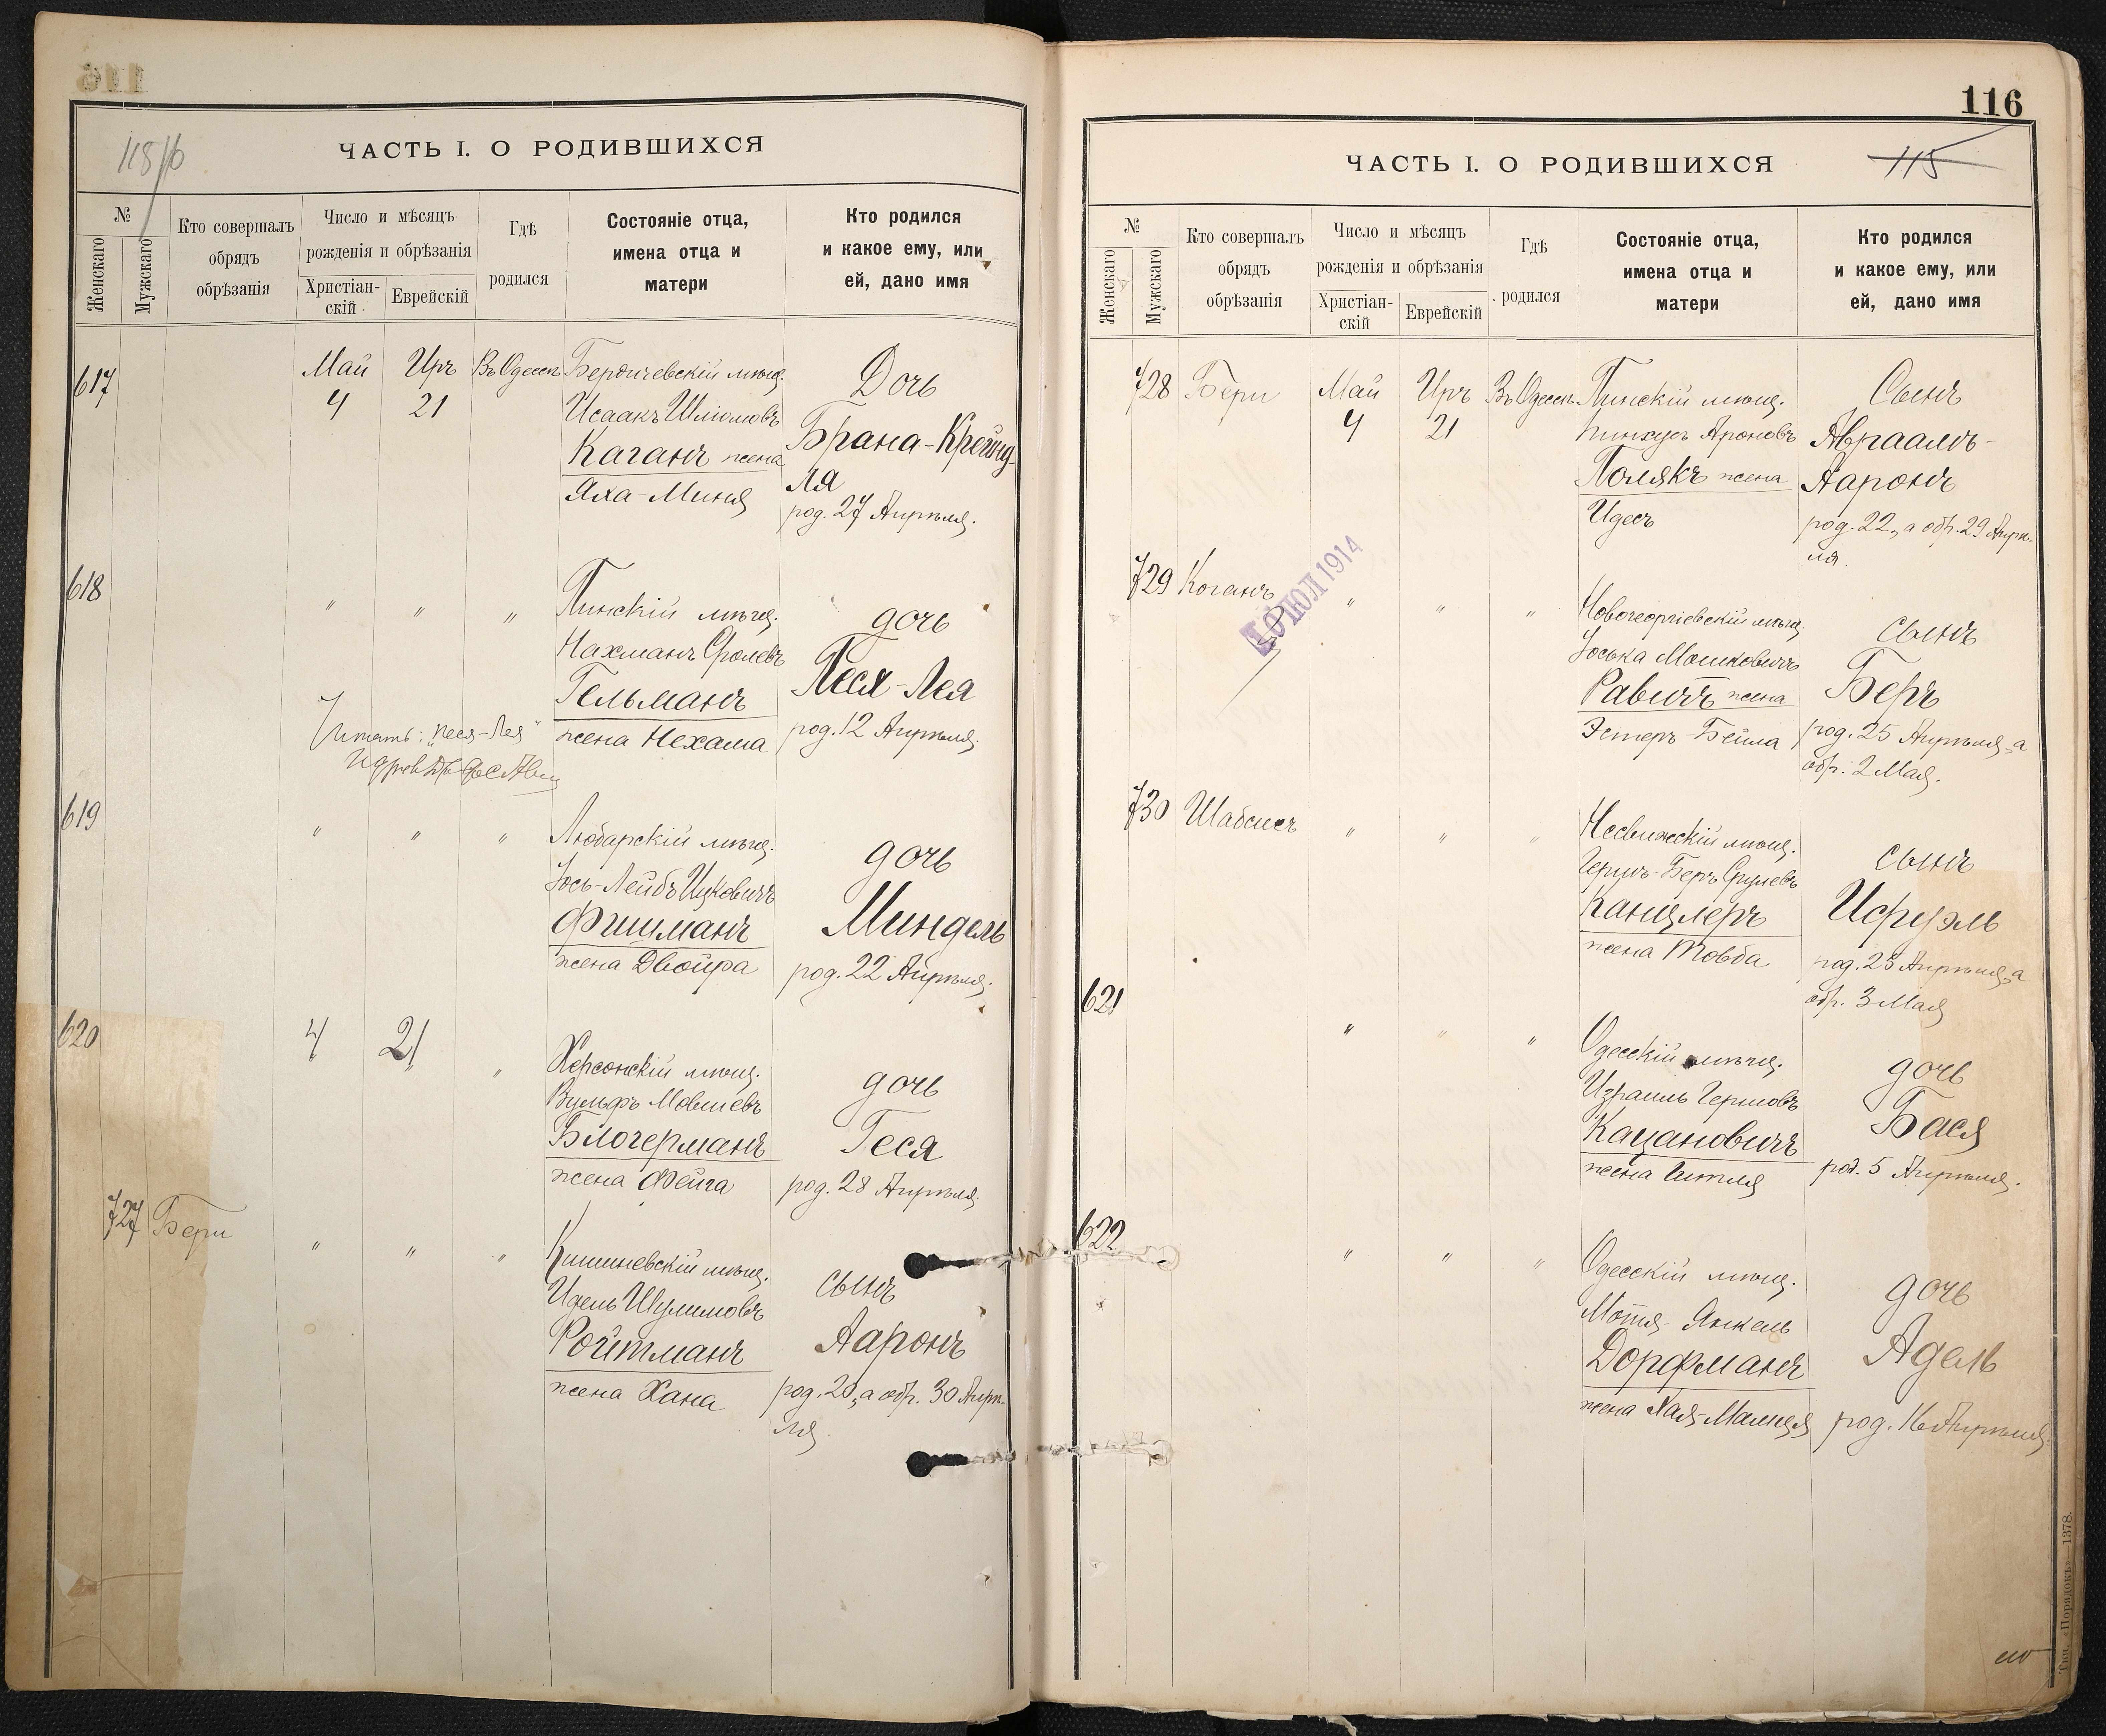 118/16
ЧАСТЬ I. О РОДИВШИХСЯ
№
Женскаго
Мужскаго
Кто совершалъ
обрядъ
обрѣзанія
Число и мѣсяцъ
рожденія и обрѣзанія
Христіан-
скій
Еврейскій
Гдѣ
родился
Состояніе отца,
имена отца и
матери
Кто родился
и какое ему, или
ей, дано имя
617
Май
4
Иръ
21
Въ Одессѣ
Бердичевскій мѣщ.
Исаакъ Шліомовъ
Каганъ жена
Яха-Миня
Дочь
Брана-Крейнд-
ля
род. 27 Апрѣля.
618
" " "
Пинскій мѣщ.
Нахманъ Сролевъ
Гельманъ
жена Нехама
дочь
Песя-Лея
род. 12 Апрѣля.
Читать: "Песя-Лея"
619
" " "
Любарскій мѣщ.
Іось-Лейбъ Ицковичъ
Фишманъ
жена Двойра
дочь
Миндель
род. 22 Апрѣля.
620
4
21
"
Херсонскій мѣщ.
Вульфъ Мовшевъ
Блогерманъ
жена Фейга
дочь
Геся
род. 28 Апрѣля.
727
Бери
" " "
Кишиневскій мѣщ.
Идель Шулимовъ
Ройтманъ
жена Хана
сынъ
Ааронъ
род. 23, а обр. 30 Апрѣ-
ля.
116
ЧАСТЬ I. О РОДИВШИХСЯ
115
№
Женскаго
Мужскаго
Кто совершалъ
обрядъ
обрѣзанія
Число и мѣсяцъ
рожденія и обрѣзанія
Христіан-
скій
Еврейскій
Гдѣ
родился
Состояніе отца,
имена отца и
матери
Кто родился
и какое ему, или
ей, дано имя
728
Бери
Май
4
Иръ
21
Въ Одессѣ
Пинскій мѣщ.
Пинхусъ Ароновъ
Полякъ жена
Идесъ
Сынъ
Авраамъ-
Ааронъ
род. 22, а обр. 29 Апрѣ-
ля.
729
Коганъ
10 ІЮЛ 1914
" " "
Новогеоргіевскій мѣщ.
Іоська Мошковичъ
Равичъ жена
Эстеръ-Бейла
сынъ
Беръ
род. 25 Апрѣля, а
обр. 2 Мая.
730
Шабсисъ
" " "
Несвижскій мѣщ.
Гершъ-Беръ Срулевъ
Канцлеръ
жена Товба
сынъ
Исруэль
род. 26 Апрѣля, а
обр. 3 Мая
621
" " "
Одесскій мѣщ.
Израиль Гершовъ
Кацановичъ
жена Гитля
дочь
Бася
род. 5 Апрѣля.
622
" " "
Одесскій мѣщ.
Мотя-Янкель
Дорфманъ
жена Хая-Малця
дочь
Адель
род. 16 Апрѣля.
Тип. «Порядокъ»—1378.